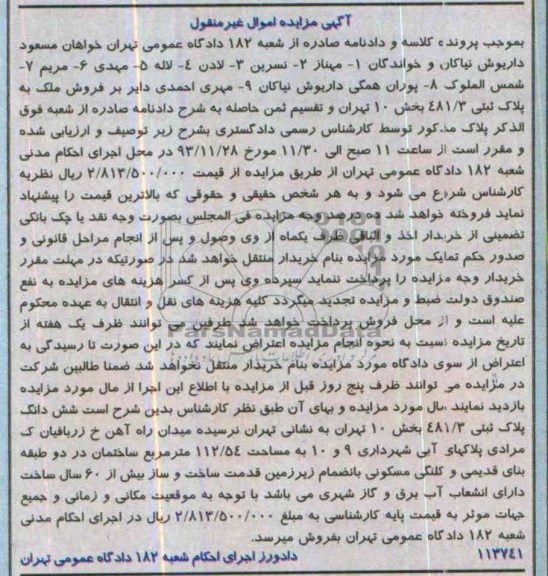 آگهی مزایده اموال غیرمنقول
بموجب پرونده کلاسه و دادنامه صادره از شعبه ۱۸۲ دادگاه عمومی تهران خواهان مسعود
داریوش نیاکان و خواندگان ۱- مهناز ۲- نسرین ۳- لادن ٤- لاله ۵- مهدی ۶- مریم ۷-
شمس الملوک ۸- پوران همگی داریوش نیاکان ۹- مهری احمدی دایر بر فروش ملک به
پلاک ثبتی ٤۸۱/۳ بخش ۱۰ تهران و تقسیم ثمن حاصله به شرح دادنامه صادره از شعبه فوق
الذکر پلاک مذکور توسط کارشناس رسمی دادگستری بشرح زیر توصیف و ارزیابی شده
و مقرر است از ساعت ۱۱ صبح الی ۱۱/۳۰ مورخ ۹۳/۱۱/۲۸ در محل اجرای احکام مدنی
شعبه ۱۸۲ دادگاه عمومی تهران از طریق مزایده از قیمت ۲/۸۱۳/۵۰۰/۰۰۰ ریال نظریه
کارشناس شروع می شود و به هر شخص حقیقی و حقوقی که بالاترین قیمت را پیشنهاد
نماید فروخته خواهد شد ده درصد وجه مزایده فی المجلس بصورت وجه نقد یا چک بانکی
تضمینی از خریدار اخذ و الباقی ظرف یکماه از وی وصول و پس از انجام مراحل قانونی و
صدور حکم تملیک مورد مزایده بنام خریدار منتقل خواهد شد در صورتیکه در مهلت مقرر
خریدار وجه مزایده را پرداخت ننماید سپرده وی پس از کسر هزینه های مزایده به نفع
صندوق دولت ضبط و مزایده تجدید میگردد کلیه هزینه های نقل و انتقال به عهده محکوم
علیه است و از محل فروش پرداخت خواهد شد طرفین می توانند ظرف یک هفته از
تاریخ مزایده نسبت به نحوه انجام مزایده اعتراض نمایند که در این صورت تا رسیدگی به
اعتراض از سوی دادگاه مورد مزایده بنام خریدار منتقل نخواهد شد ضمنا طالبین شرکت
در مزایده می توانند ظرف پنج روز قبل از مزایده با اطلاع این اجرا از مال مورد مزایده
بازدید نمایند مال مورد مزایده و بهای آن طبق نظر کارشناس بدین شرح است شش دانگ
پلاک ثبتی ٤۸۱/۳ بخش ۱۰ تهران به نشانی تهران نرسیده میدان راه آهن خ زریافیان ک
مرادی پلاکهای آبی شهرداری ۹ و ۱۰ به مساحت ۱۱۲/۵٤ مترمربع ساختمان در دو طبقه
بنای قدیمی و کلنگی مسکونی بانضمام زیرزمین قدمت ساخت و ساز بیش از ۶۰ سال ساخت
دارای انشعاب آب برق و گاز شهری می باشد با توجه به موقعیت مکانی و زمانی و جمیع
جهات موثر به قیمت پایه کارشناسی به مبلغ ۲/۸۱۳/۵۰۰/۰۰۰ ریال در اجرای احکام مدنی
شعبه ۱۸۲ دادگاه عمومی تهران بفروش میرسد.
۱۱۳۷٤۱ دادورز اجرای احکام شعبه ۱۸۲ دادگاه عمومی تهران
ParsNamadData